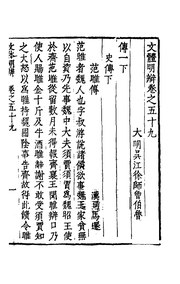 文體明辯卷之五十九
大明吳江徐師曾伯魯
傳一下
史傳下
范雎傳
漢司馬遷
范雎者魏人也字叔游說諸侯欲事魏王家貧無
以自資乃先事魏中大夫須賈須賈爲魏昭王使
於齊范雎從留數月未得報齊襄王聞雎辯口乃
使人賜雎金十斤及牛酒雎辭謝不敢受須賈知
之大怒以爲雎持魏國陰事告齊故得此饋令雎
文體明辯 卷之五十九